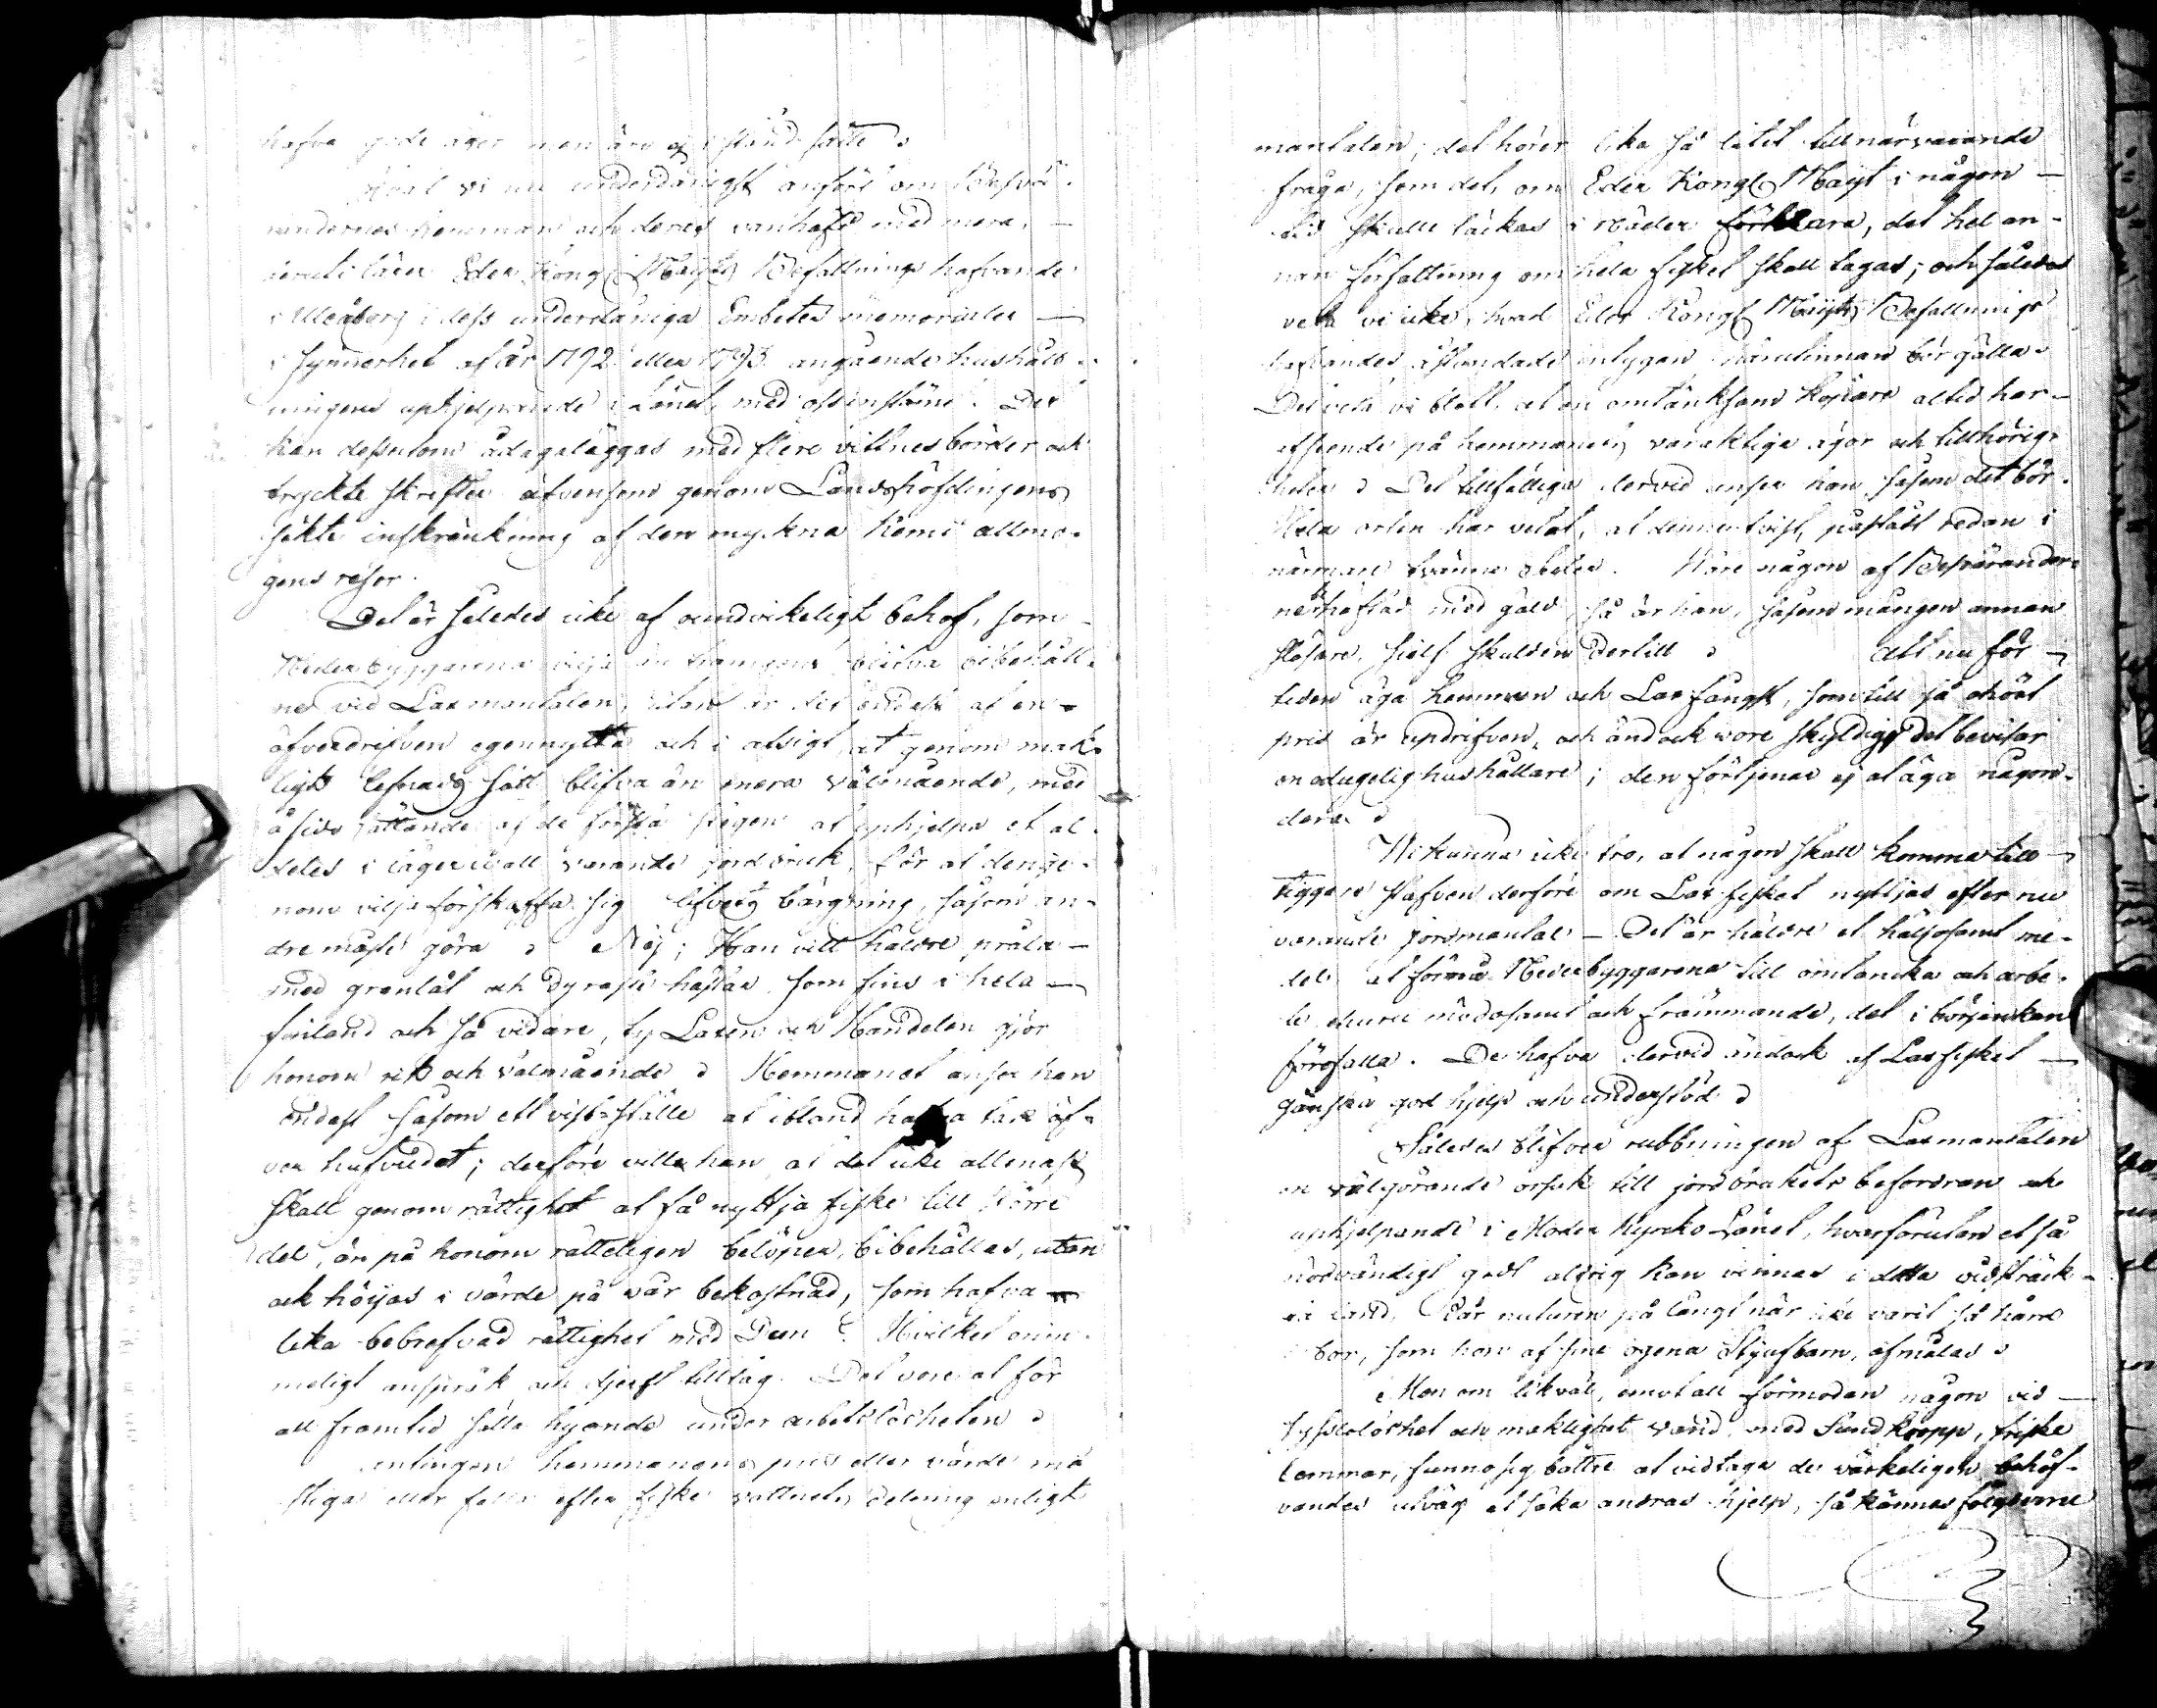 hafva goda äger men äro ej i stånd satte
Hvad vi nu underdånigst anfört om Besvä-
randernes hemman och deras vanhäfd med mera,
lärer Eder Kongl. Maijts Befallningshafvande
i Uleåborg i dess underdåniga Embetes memorialer
i synnerhet af år 1792 eller 1793 angående hushåld-
ningens uphjelpande i Länet, med oss instäma. Det
kan dessutom ådagaläggas med flere vittnesbörder och
tryckte skrifter äfvensom genom Landshöfdingens
sökte inskränkning af den myckna Kemi allmo-
gens resor.
Det är således icke af oundvikeligt behof, som
Nederbyggarena vilja bibehåll-
ne vid Laxmantalen, utan är det endast af en
öfverdrifven egennytta och i afsigt at genom mak-
ligt lefnads sätt blifva än mera välmående, med
åsido sättande af de första stegen at uphjelpa et al-
deles i lägervall varande jordbruk, för at derige-
nom vilja förskaffa sig lifvets bärgning, såsom an-
dre måste göra Nej; Han vill häldre pråla
med grantåt och dyraste hästar som fins i hela
finland och så vidare, ty Laxen och Handelen gjör
honom rik och välmående Hemmanet anser han
endast såsom ett vist ställe at ibland hafva tak öf-
ver hufvudet; derföre vill han at det icke allenast
skall genom rättighet at få nyttja fiske till större
del, än på honom rätteligen belöper, bibehållas, utan
ock höijas i värde på vår bekostnad, som hafva
lika bebrefvad rättighet med Dem? Hvilket orim-
meligt anspråk och djerft tilltag. Det vore at för
all framtid sätta hyende under arbetslösheten
antingen hemmanens pris eller värde må
stiga eller falla efter fiske vattnets delning enligt
mantalen; det hörer lika så litet till närvarande
fråga, som det, om Eder Kongl. Maijt i någon
tid skulle täckas i nåder förklara, det hel an-
nan författning om hela fisket skall tagas; och således
veta vi icke, hvad Eder Kongl. Maijts Befallnings
hafvandes åstundade bör gälla.
Det veta vi blott, at en omtänksam Köpare altid har
afseende på hemmanets varaktiga ägor och tillhörig-
heter Det tillfälliga dervid anser han såsom det bör.
Hela orten har vetat, at denne tvist, påstått redan i
närmare tvänne Vore någon af Besvärander-
ne häftad med gäld, så är han, såsom mången annan
slösare, sjelf skulden dertill Att nu för
tiden äga hemman och Laxfångst, som till så ohört
pris är updrifven, och ändock vore skyldig, det bevisar
en odugelig hushållare; den förtjenar ej at äga någon-
dera
Vi kunna icke tro, at någon skall komma till
tiggare stafven derföre om Laxfisket nyttjas efter nu
varande jordmantal – Det är häldre et hälsosamt me-
del at förmå Nederbyggarena till omtanka och arbe-
te ehuru mödosamt och främmande, det i början kan
förefalla. De hafva dervid ändock af Laxfisket
ganska god hjelp och understöd
Således blifver rubbningen af Laxmantalen
en välgörande orsak till jordbrukets befordran och
uphjelpande i Länet, hvarförutan et så
nödvändigt godt aldrig kan vinnas i detta vidsträck-
ta land, där naturen på långt när icke varit så hård
som hon af sine egena Styufbarn, afmålas
Men om likväl, emot all förmodan någon vid
sysslolöshet och maklighet vand, med Sund kropp, friske
lemmar, funno sig bättre at vidtaga de värkeligen behöf-
vandes utväg at söka andras hjelp, så kännas följderne